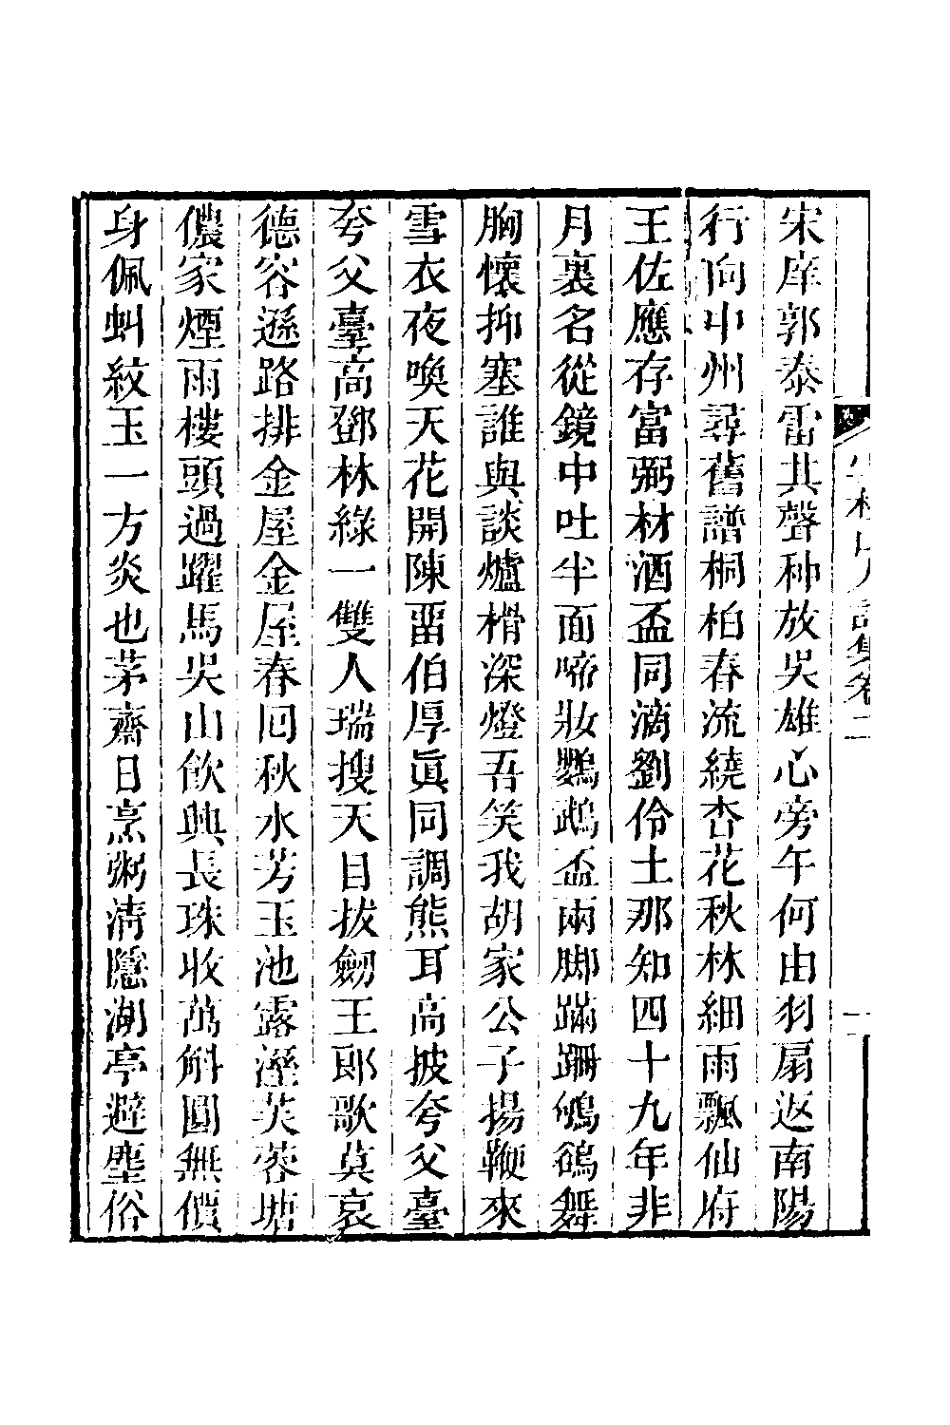 宋庠郭泰雷共聲种放吳雄心旁午何由羽扇返南陽
行向中州尋舊譜桐柏春流繞杏花秋林細雨飄仙府
王佐應存富弼材酒盃同滴劉伶土那知四十九年非
月裏名從鏡中吐半面啼妝鸚鵡盃兩脚蹣跚鴝鵒舞
胸懷抑塞誰與談爐榾深燈吾笑我胡家公子揚鞭來
雪衣夜喚天花開陳畱伯厚眞同調熊耳高披夸父臺
夸父臺高鄧林綠一雙人瑞搜天目拔劒王郎歌莫哀
德容遜路排金屋金屋春回秋水芳玉池露溼芙蓉塘
儂家煙雨樓頭過躍馬吳山飲興長珠收萬斛圓無價
身佩虯紋玉一方炎也茅齋日烹粥淸隱湖亭避塵俗
集卷二